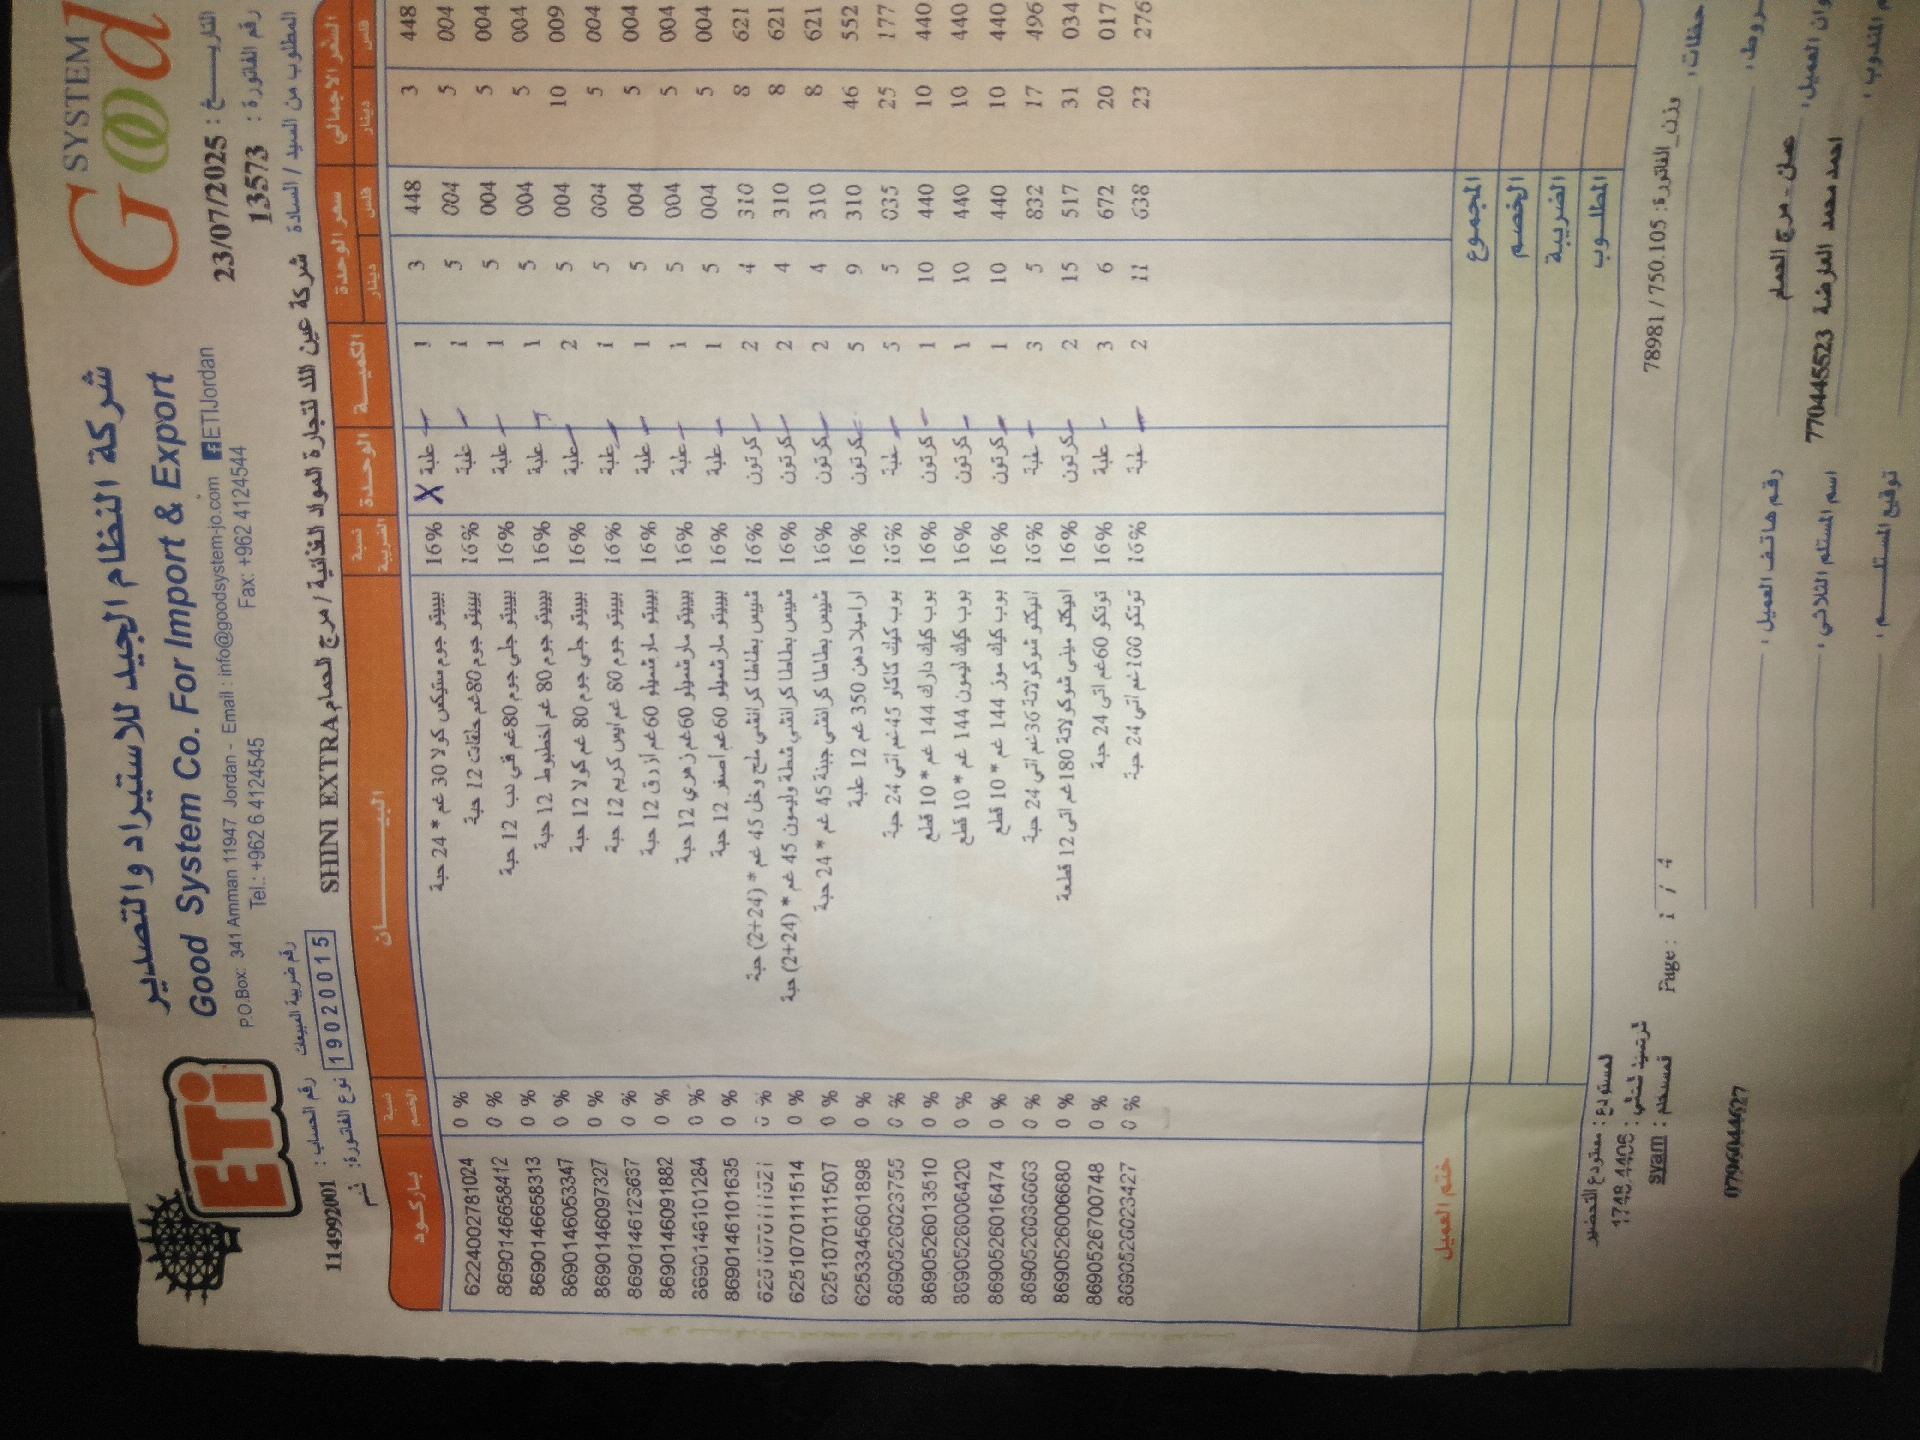 شركة النظام الجيد للاستيراد والتصدير
Good System Co. For Import & Export
P.O.Box: 341 Amman 11947 Jordan - Email : info@goodsystem-jo.com ETIJordan
Tel.: +962 6 4124545 Fax: +962 4124544
ETi
Good SYSTEM
التاريـــخ : 23/07/2025
رقم الفاتورة : 13573
رقم ضريبة المبيعات
19020015
رقم الحساب : 114992001
نوع الفاتورة: ذمم
المطلوب من السيد / السادة شركة عين اللد لتجارة المواد الغذائية / مرج الحمام SHINI EXTRA
باركود نسبة الخصم البيـــــان نسبة الضريبة الوحدة الكميـة سعر الوحدة السعر الاجمالي
دينار فلس دينار فلس
6224002781024 0 % بيبيتو جوم ستيكس كولا 30 غم * 24 حبة 16% علبة X 1 3 448 3 448
8690146658412 0 % بيبيتو جوم 80غم حلقات 12 حبة 16% علبة 1 5 004 5 004
8690146658313 0 % بيبيتو جلي جوم 80غم فني دب 12 حبة 16% علبة 1 5 004 5 004
8690146053347 0 % بيبيتو جوم 80 غم اخطبوط 12 حبة 16% علبة 1 5 004 5 004
8690146097327 0 % بيبيتو جلي جوم 80 غم كولا 12 حبة 16% علبة 2 5 004 10 009
8690146123637 0 % بيبيتو جوم 80 غم ايس كريم 12 حبة 16% علبة 1 5 004 5 004
8690146091882 0 % بيبيتو مارشميلو 60غم أزرق 12 حبة 16% علبة 1 5 004 5 004
8690146101284 0 % بيبيتو مارشميلو 60غم زهري 12 حبة 16% علبة 1 5 004 5 004
8690146101635 0 % بيبيتو مارشميلو 60غم أصفر 12 حبة 16% علبة 1 5 004 5 004
0 % شيبس بطاطا كرانشي ملح وخل 45 غم * (24+2) حبة 16% كرتون 2 4 310 8 621
6251070111514 0 % شيبس بطاطا كرانشي شطة وليمون 45 غم * (24+2) حبة 16% كرتون 2 4 310 8 621
6251070111507 0 % شيبس بطاطا كرانشي جبنة 45 غم * 24 حبة 16% كرتون 2 4 310 8 621
6253345601898 0 % اراميلا دهن 350 غم 12 علبة 16% كرتون 5 9 310 46 552
8690526023755 0 % بوب كيك كاكاو 45غم اتي 24 حبة 16% علبة 5 5 035 25 177
8690526013510 0 % بوب كيك دارك 144 غم * 10 قطع 16% كرتون 1 10 440 10 440
8690526006420 0 % بوب كيك ليمون 144 غم * 10 قطع 16% كرتون 1 10 440 10 440
8690526016474 0 % بوب كيك موز 144 غم * 10 قطع 16% كرتون 1 10 440 10 440
8690526036663 0 % اتيكتو شوكولاتة 36غم اتي 24 حبة 16% علبة 3 5 832 17 496
8690526006680 0 % اتيكتو ميني شوكولاتة 180غم اتي 12 قطعة 16% كرتون 2 15 517 31 034
8690526700748 0 % توتكو 60غم اتي 24 حبة 16% علبة 3 6 672 20 017
8690526023427 0 % توتكو 100غم اتي 24 حبة 16% علبة 2 11 638 23 276
ختم العميل
المجموع
الخصم
الضريبة
المطلوب
المستودع : مستودع التحضير
1748.4406
المستخدم : syam
Page : 1 / 4
وزن_الفاتورة: 750.105 / 78981
رقم هاتف العميل :
عمان - مرج الحمام
اسم المستلم الثلاثي :
احمد محمد العارضة 770445523
توقيع المستلـــم :
0796044627